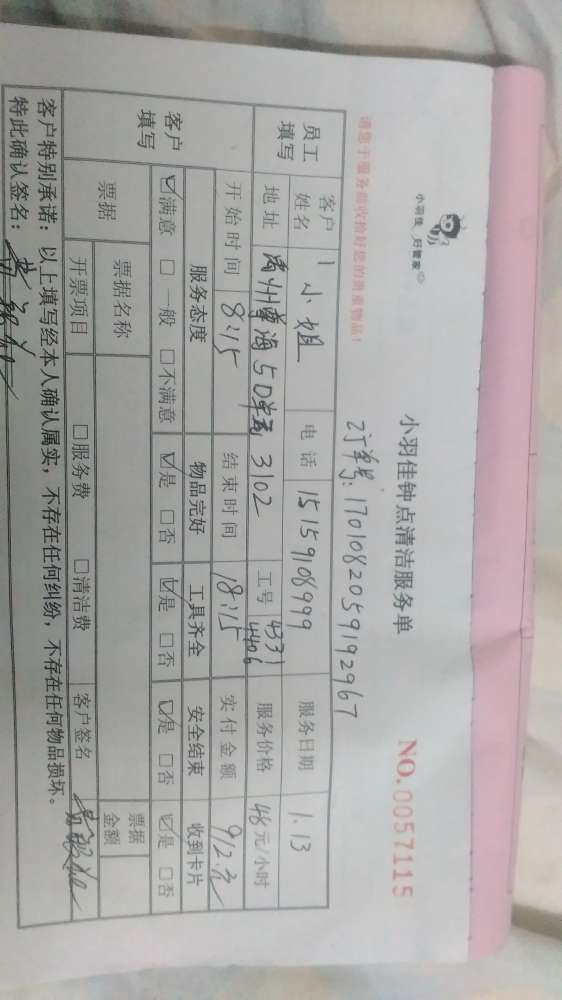 小羽佳 好管家
小羽佳钟点清洁服务单
NO. 0057115
订单号: 1701082059192967
请您于服务前收捡好您的贵重物品!
员工填写 客户姓名 小姐 电话 15159108999 服务日期 1.13
地址 禹州尊海 5D 3102 工号 4331 4406 服务价格 48元/小时
客户填写 开始时间 8:15 结束时间 18:15 实付金额 912.元
服务态度 物品完好 工具齐全 安全结束 收到卡片
☑满意 □一般 □不满意 ☑是 □否 ☑是 □否 ☑是 □否 ☑是 □否
票据 票据名称 票据金额
开票项目 □服务费 □清洁费 客户签名
客户特别承诺:以上填写经本人确认属实,不存在任何纠纷,不存在任何物品损坏。
特此确认签名: